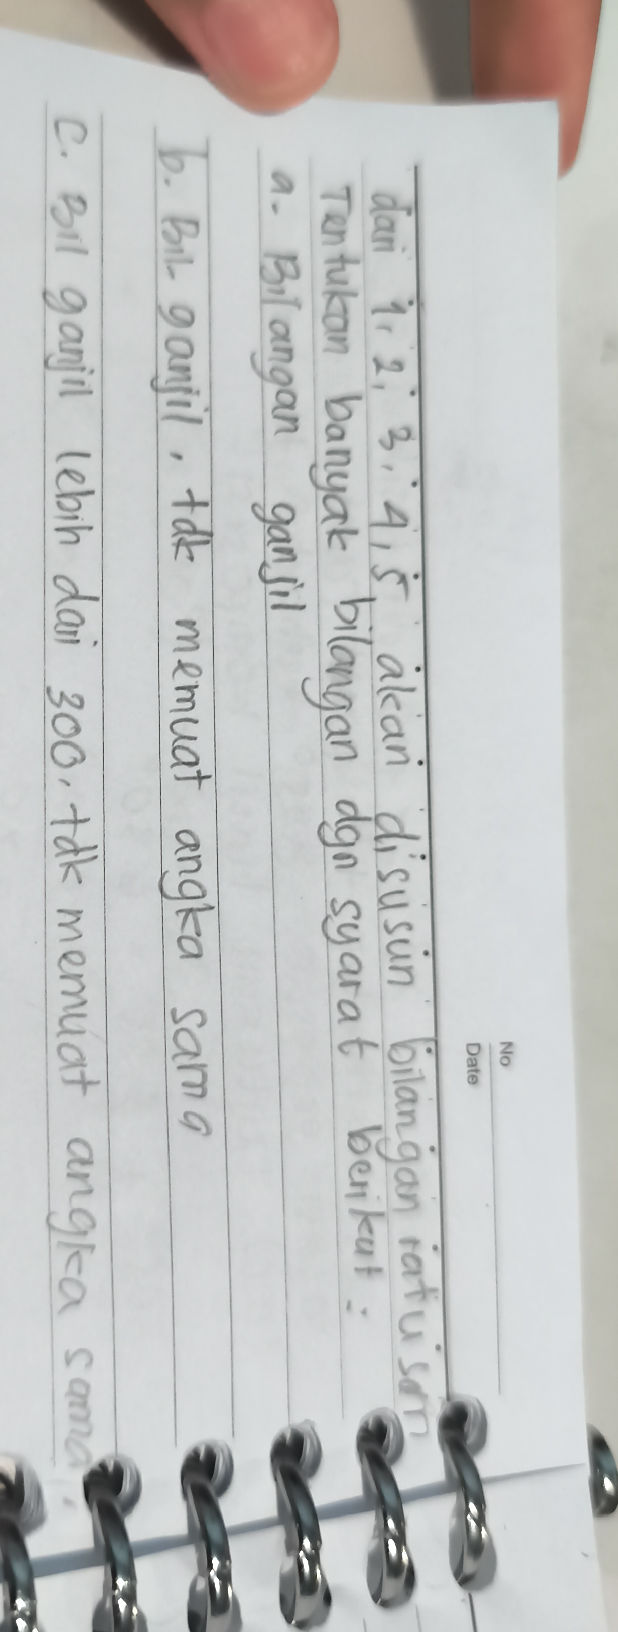 No
Date
dari 1, 2, 3, 4, 5 akan disusun bilangan ratusan
Tentukan banyak bilangan dgn syarat berikut :
a. Bilangan ganjil
b. Bil. ganjil, tdk memuat angka sama
c. Bil ganjil lebih dari 300, tdk memuat angka sama.